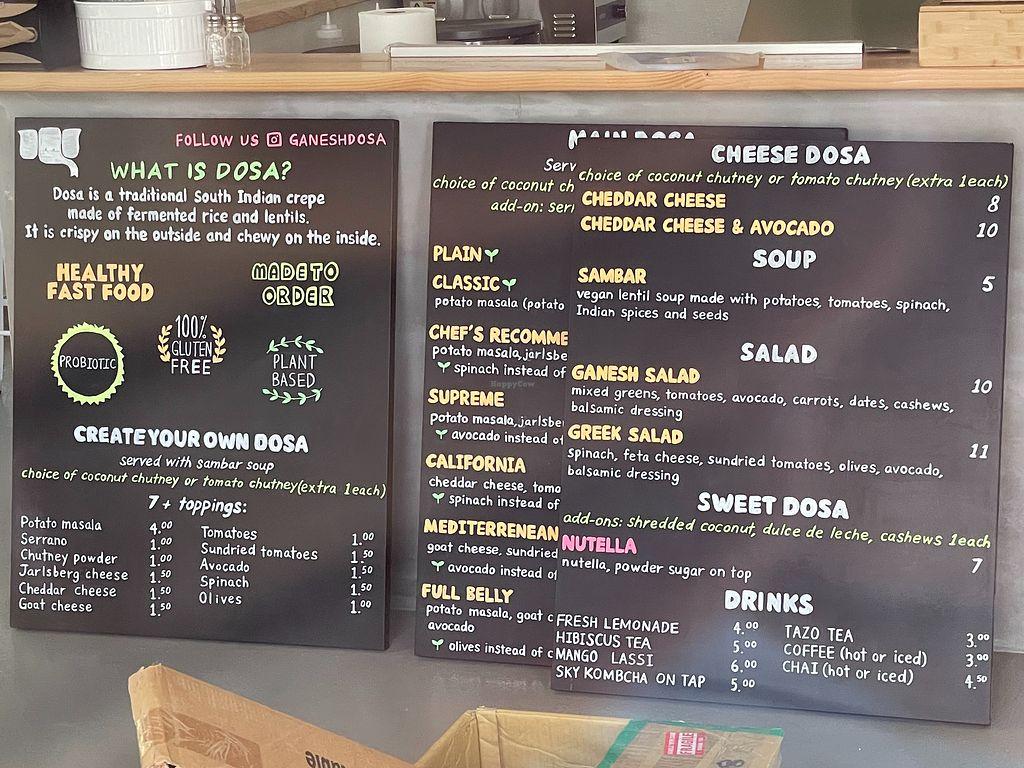 FOLLOW US GANESHDOSA
WHAT IS DOSA?
Dosa is a traditional South Indian crepe
made of fermented rice and lentils.
It is crispy on the outside and chewy on the inside.
HEALTHY
FAST FOOD
MADE TO
ORDER
PROBIOTIC
100%
GLUTEN
FREE
PLANT
BASED
CREATE YOUR OWN DOSA
served with sambar soup
choice of coconut chutney or tomato chutney (extra 1each)
7 + toppings:
Potato masala 4.00
Serrano 1.00
Chutney powder 1.00
Jarlsberg cheese 1.50
Cheddar cheese 1.50
Goat cheese 1.50
Tomatoes 1.00
Sundried tomatoes 1.50
Avocado 1.50
Spinach 1.50
Olives 1.00
MAIN DOSA
Serv
choice of coconut ch
add-on: ser
PLAIN
CLASSIC
potato masala (potato
CHEF'S RECOMME
potato masala, jarlsbe
spinach instead of
SUPREME
potato masala, jarlsbe
avocado instead of
CALIFORNIA
cheddar cheese, tomo
spinach instead of
MEDITERRENEAN
goat cheese, sundried
avocado instead of
FULL BELLY
potato masala, goat c
avocado
olives instead of c
CHEESE DOSA
choice of coconut chutney or tomato chutney (extra 1each)
CHEDDAR CHEESE 8
CHEDDAR CHEESE & AVOCADO 10
SOUP
SAMBAR 5
vegan lentil soup made with potatoes, tomatoes, spinach,
Indian spices and seeds
SALAD
GANESH SALAD 10
mixed greens, tomatoes, avocado, carrots, dates, cashews,
balsamic dressing
GREEK SALAD 11
Spinach, feta cheese, sundried tomatoes, olives, avocado,
balsamic dressing
SWEET DOSA
add-ons: shredded coconut, dulce de leche, cashews 1each
NUTELLA 7
nutella, powder sugar on top
DRINKS
FRESH LEMONADE 4.00
HIBISCUS TEA 5.00
MANGO LASSI 6.00
SKY KOMBCHA ON TAP 5.00
TAZO TEA 3.00
COFFEE (hot or iced) 3.00
CHAI (hot or iced) 4.50
HappyCow
FRAGILE